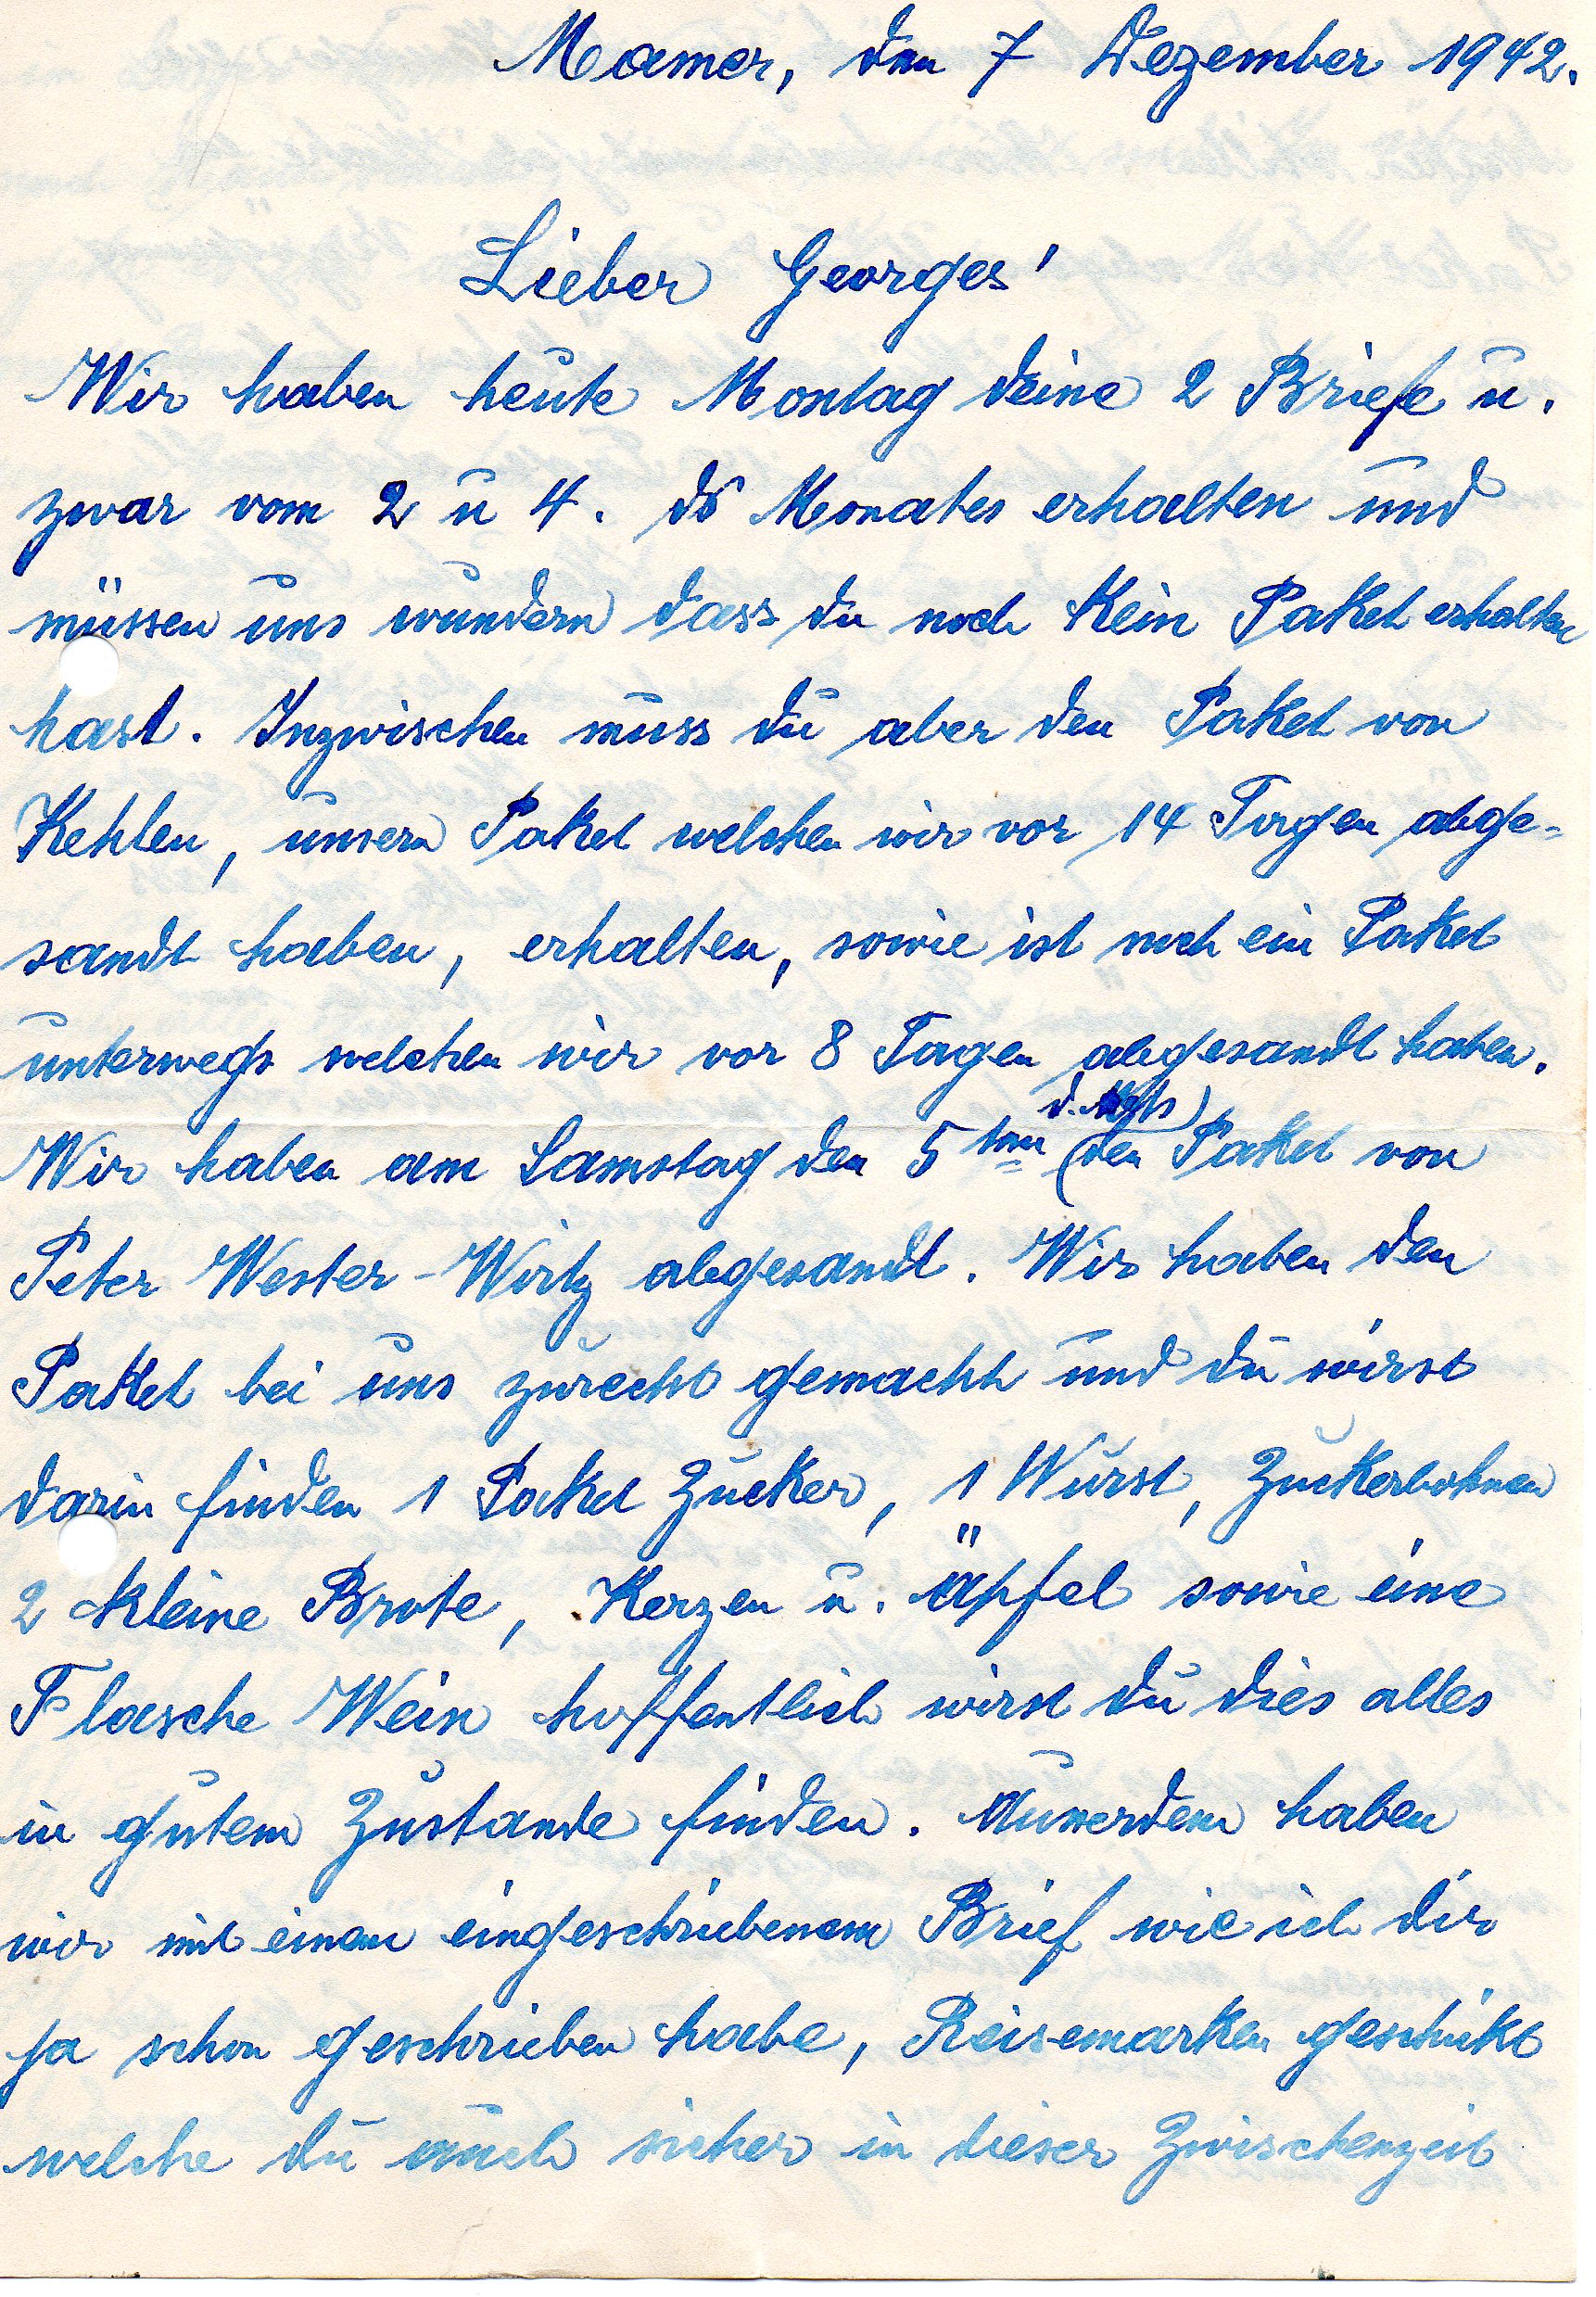 Mamer, den 7 Dezember 1942.
Lieber Georges!
Wir haben heute Montag deine 2 Briefe u.
zwar vom 2 u 4. ds Monates erhalten und
müssen uns wundern dass du noch kein Paket erhalten
hast. Inzwischen muss du aber den Paket von
Kehlen, unsern Paket welchen wir vor 14 Tagen abge-
sandt haben, erhalten, sowie ist noch ein Paket
unterwegs welchen wir vor 8 Tagen abgesandt haben.
d. Mts)
Wir haben am Samstag den 5ten (den Paket von
Peter Wester-Wirtz abgesandt. Wir haben den
Paket bei uns zurecht gemacht und du wirst
darin finden 1 Paket Zucker, 1 Wurst, Zuckerbohnen
2 kleine Brote, Kerzen u. äpfel sowie eine
Flasche Wein hoffentlich wirst du dies alles
in gutem Zustande finden. Ausserdem haben
wir mit einem eingeschriebenem Brief wie ich dir
ja schon geschrieben habe, Reisemarken geschikt
welche du auch sicher in dieser Zwischenzeit